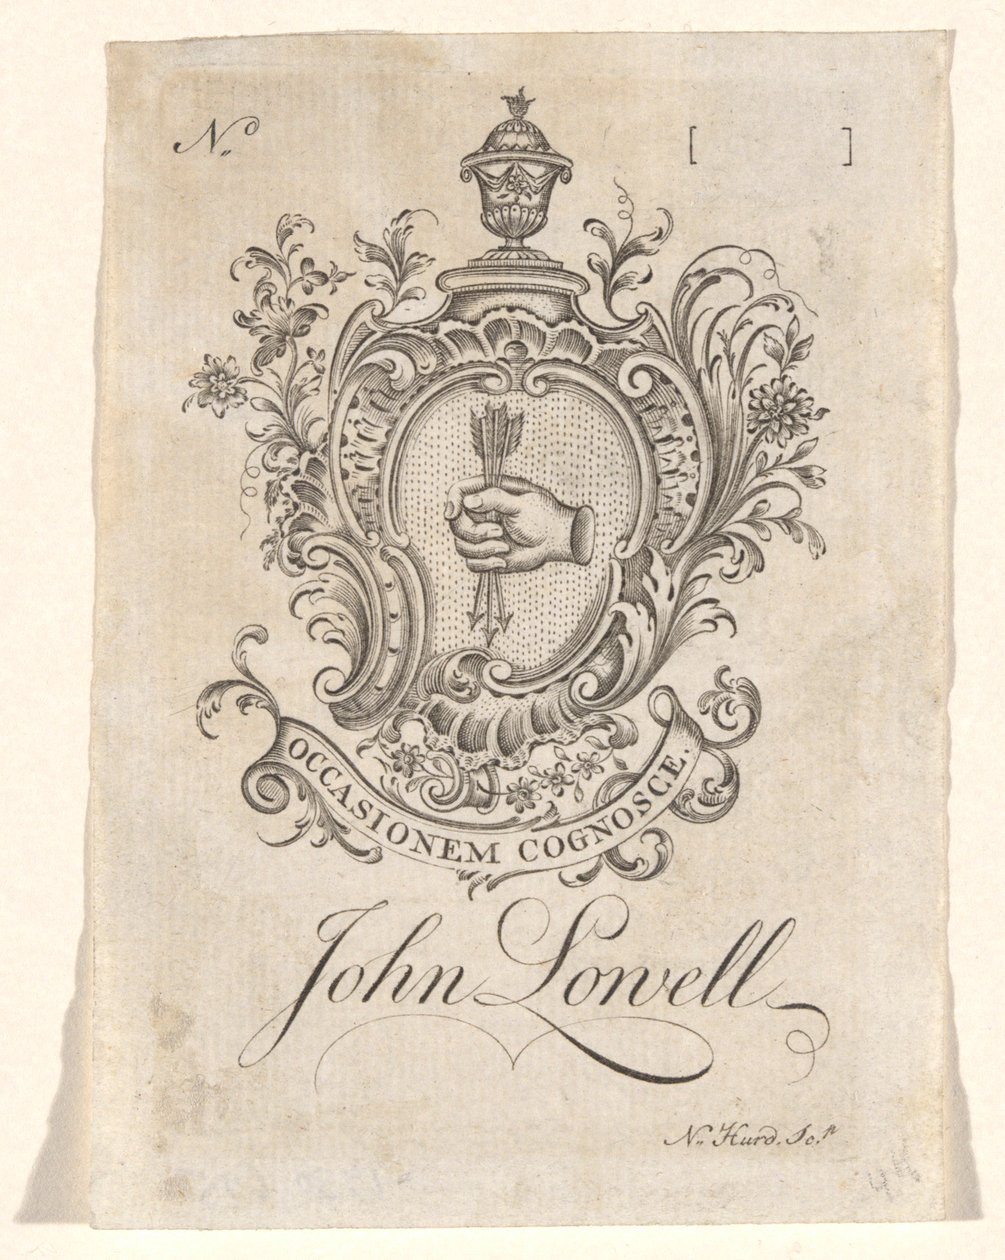 Nº [ ]
OCCASIONEM COGNOSCE.
John Lowell
N. Hurd. Sc.ᵖ